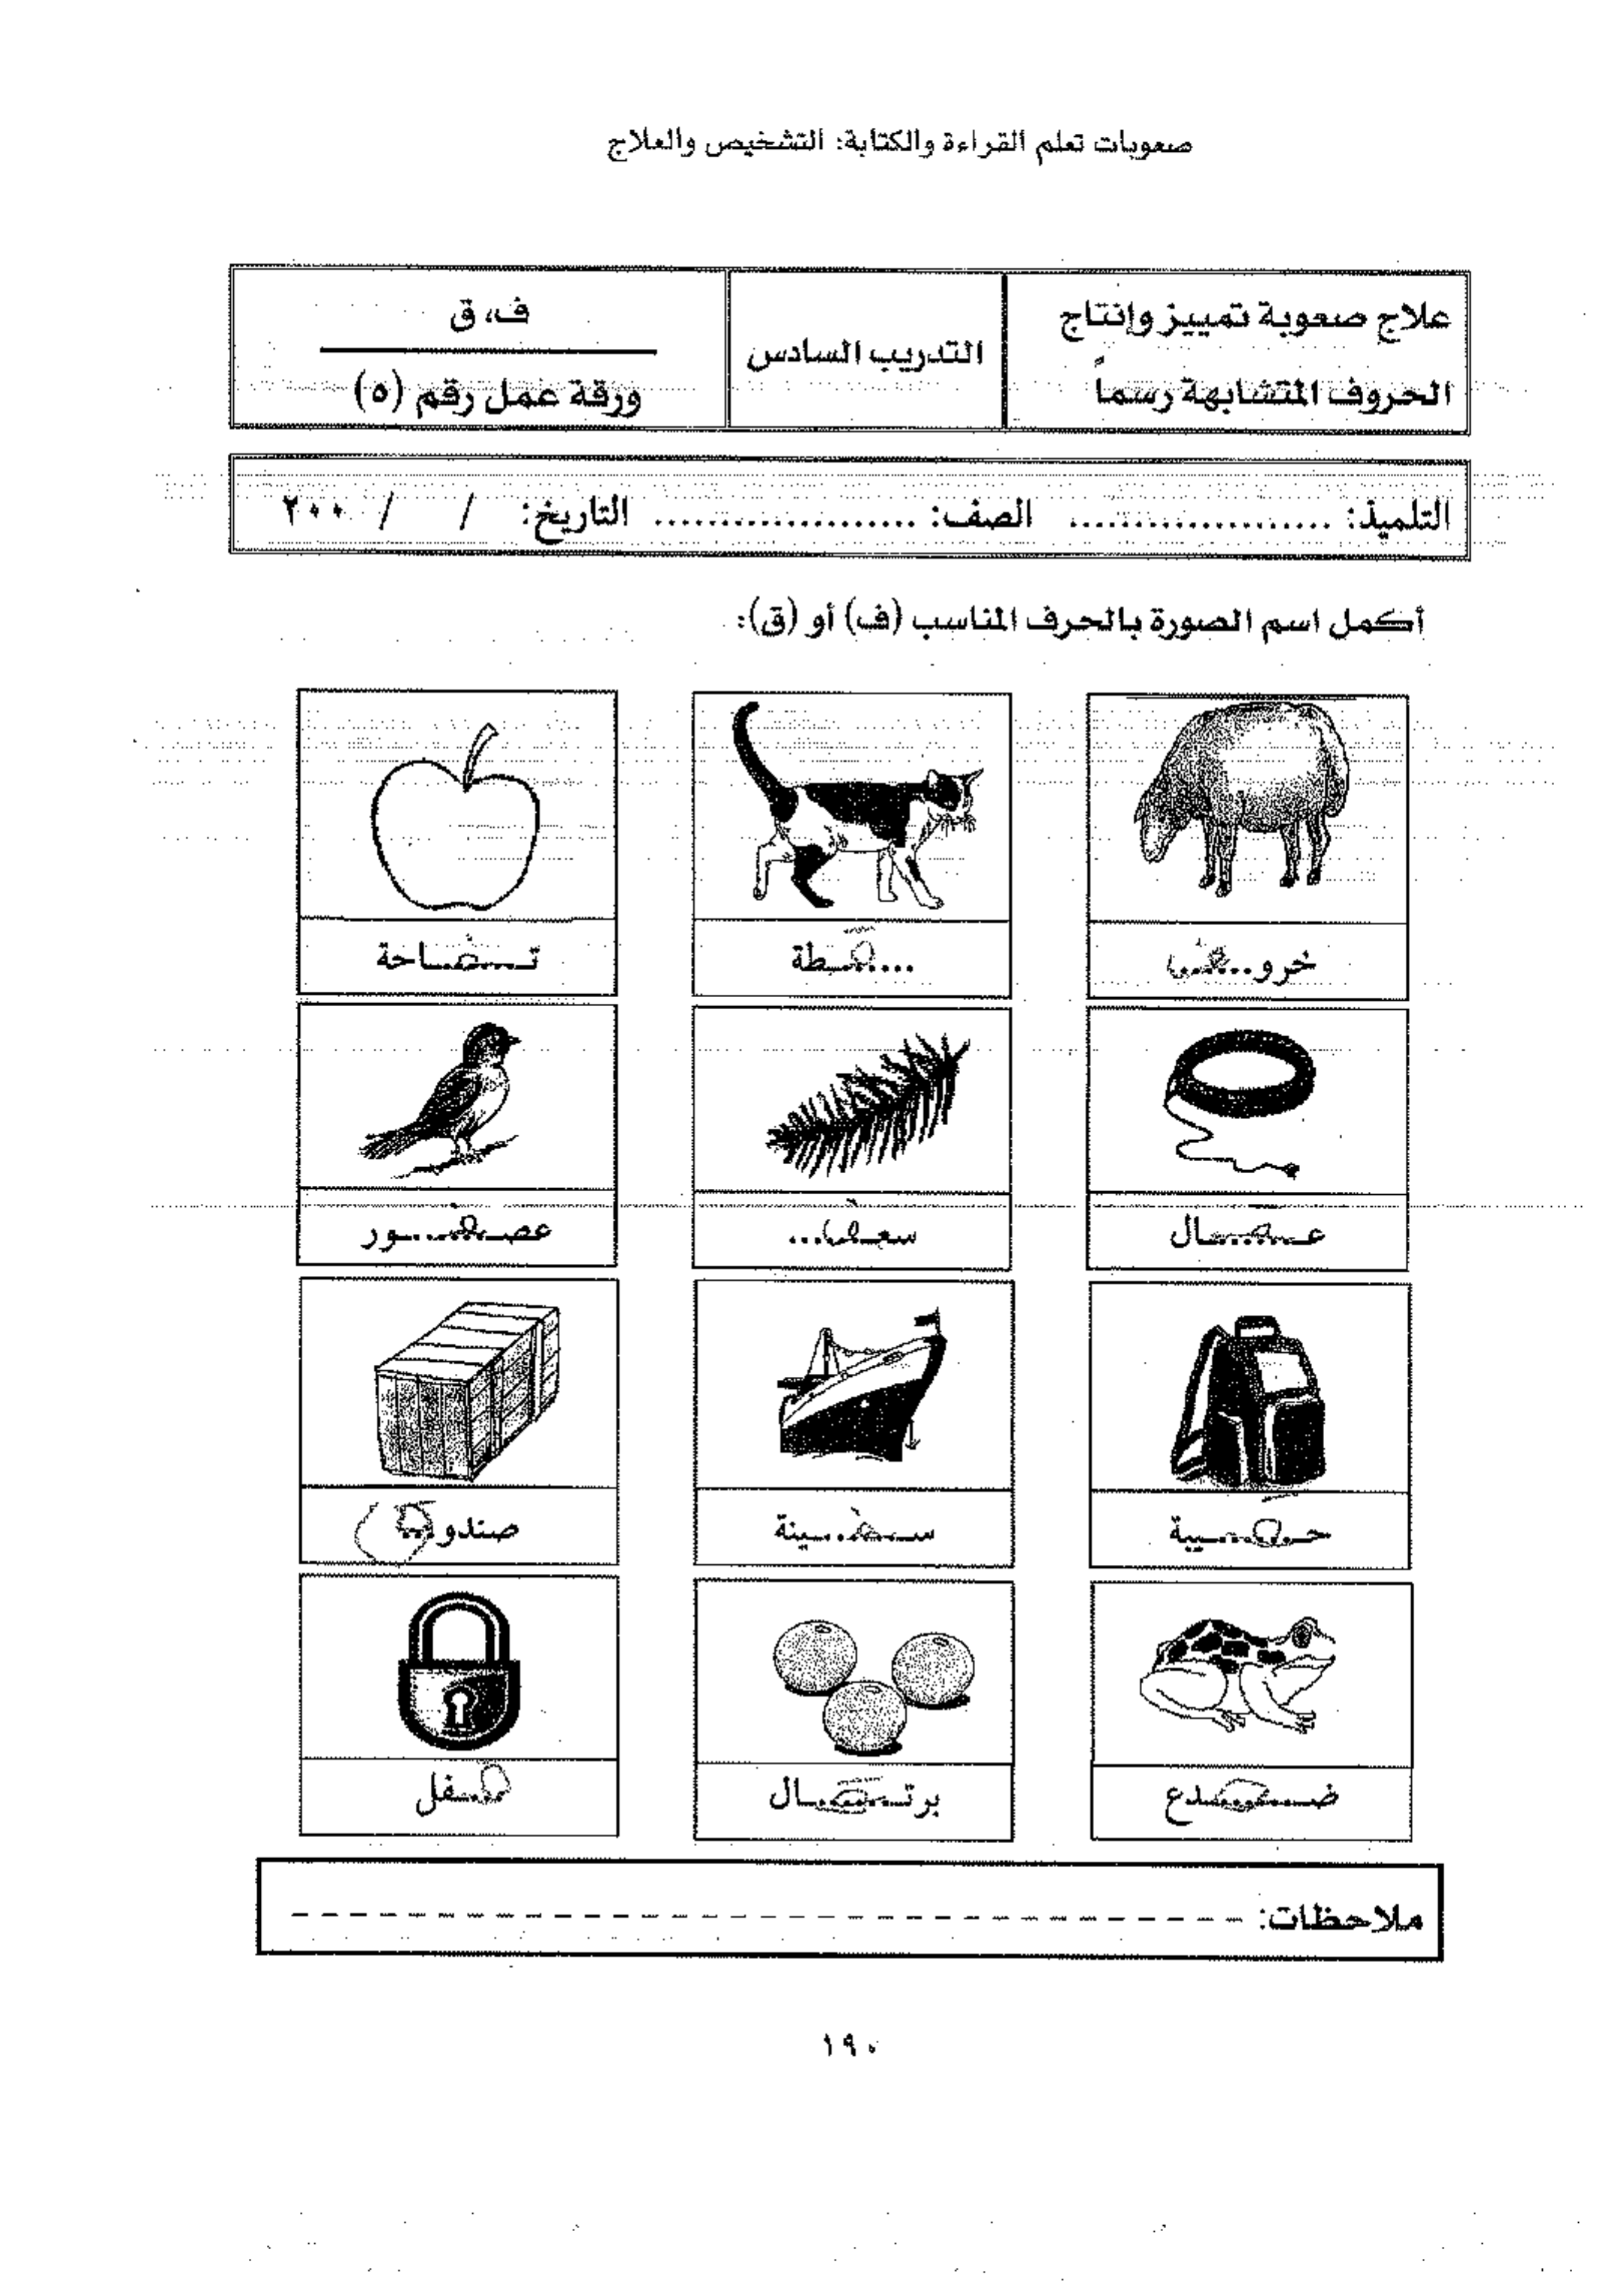 صعوبات تعلم القراءة والكتابة: التشخيص والعلاج
علاج صعوبة تمييز وإنتاج
الحروف المتشابهة رسماً
التدريب السادس
ف، ق
ورقة عمل رقم (٥)
التلميذ: .................... الصف: .................... التاريخ: / / ٢٠٠
أكمل اسم الصورة بالحرف المناسب (ف) أو (ق):
خروف
قطة
تفاحة
عقال
سعف
عصفور
حقيبة
سفينة
صندوق
ضفدع
برتقال
قفل
ملاحظات:
١٩٠